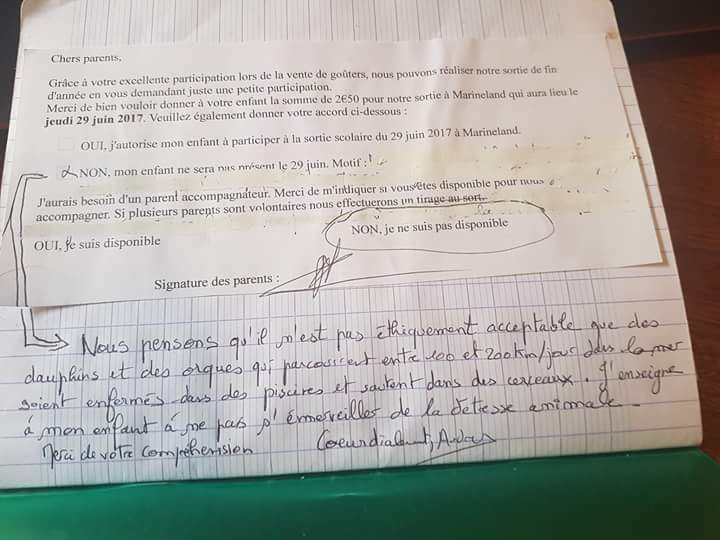 Chers parents,
Grâce à votre excellente participation lors de la vente de goûters, nous pouvons réaliser notre sortie de fin
d'année en vous demandant juste une petite participation.
Merci de bien vouloir donner à votre enfant la somme de 2€50 pour notre sortie à Marineland qui aura lieu le
jeudi 29 juin 2017. Veuillez également donner votre accord ci-dessous :
OUI, j'autorise mon enfant à participer à la sortie scolaire du 29 juin 2017 à Marineland.
NON, mon enfant ne sera pas présent le 29 juin. Motif :
J'aurais besoin d'un parent accompagnateur. Merci de m'indiquer si vous êtes disponible pour nous
accompagner. Si plusieurs parents sont volontaires nous effectuerons un tirage au sort.
OUI, je suis disponible
NON, je ne suis pas disponible
Signature des parents :
Nous pensons qu'il n'est pas éthiquement acceptable que des
dauphins et des orques qui parcourent entre 100 et 200 km/jour dans la mer
soient enfermés dans des piscines et sautent dans des cerceaux. J'enseigne
à mon enfant à ne pas s'émerveiller de la détresse animale.
Merci de votre compréhension